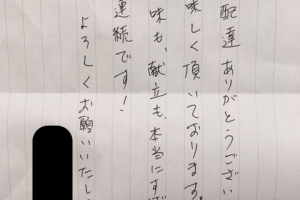 配達ありがとうござい
味しく頂いております。
味も、献立も、本当にすば
連続です!
よろしくお願いいたし